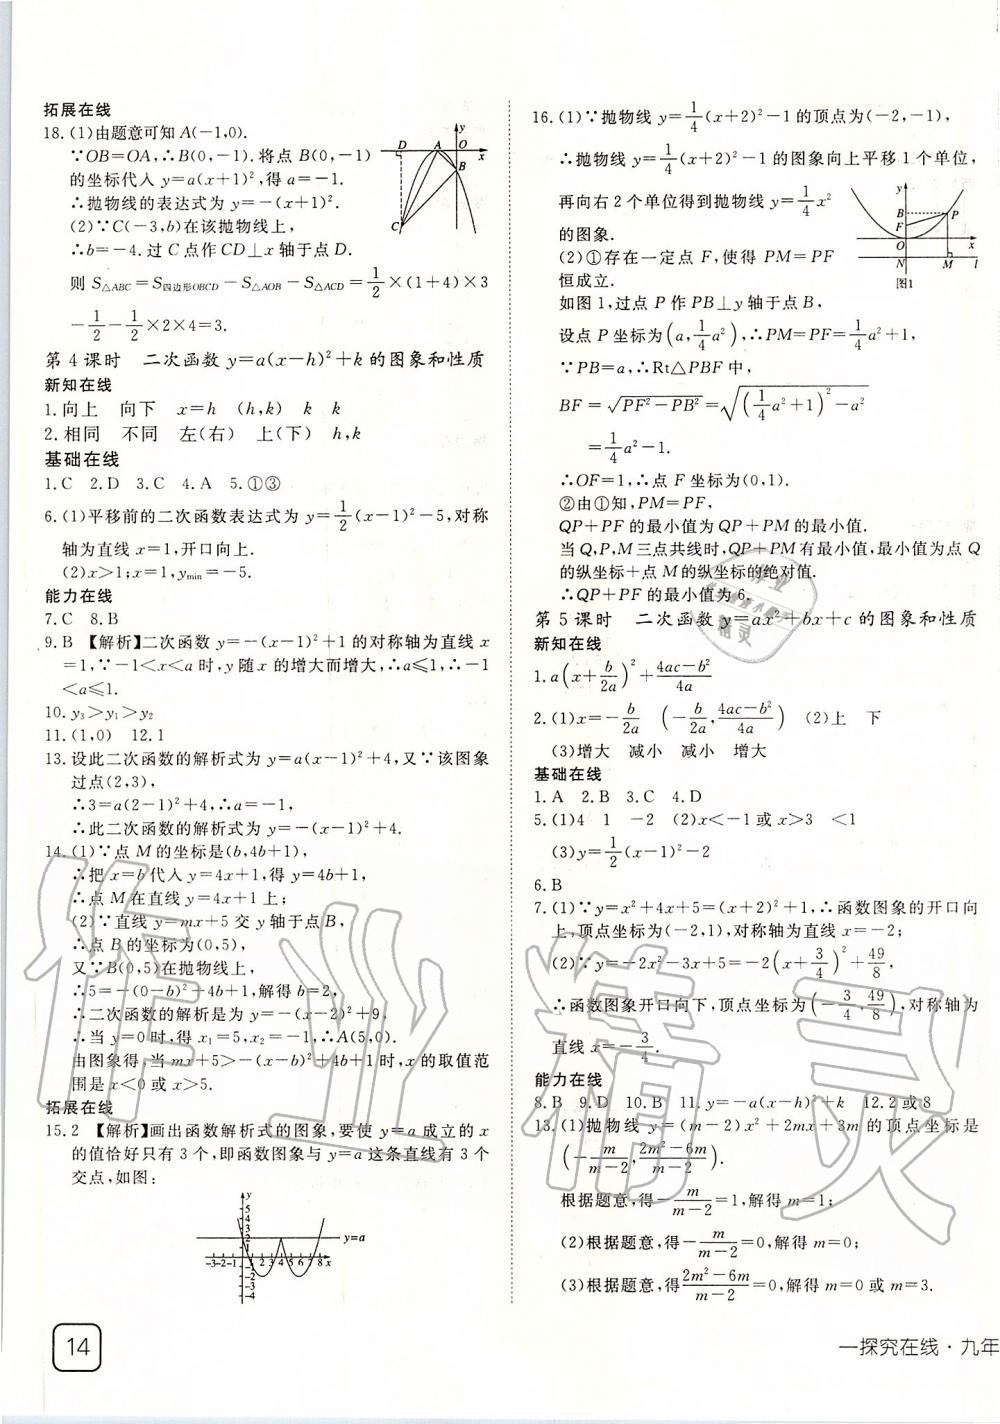 拓展在线
18.(1)由题意可知 A(-1,0).
∵OB=OA,∴B(0,-1).将点 B(0,-1)
的坐标代入 y=a(x+1)²,得 a=-1.
∴抛物线的表达式为 y=-(x+1)².
(2)∵C(-3,b)在该抛物线上,
∴b=-4.过 C 点作 CD⊥x 轴于点 D.
则 S△ABC=S四边形OBCD-S△AOB-S△ACD=1/2×(1+4)×3
-1/2-1/2×2×4=3.
D A O x y B C
第 4 课时 二次函数 y=a(x-h)²+k 的图象和性质
新知在线
1.向上 向下 x=h (h,k) k k
2.相同 不同 左(右) 上(下) h,k
基础在线
1.C 2.D 3.C 4.A 5.①③
6.(1)平移前的二次函数表达式为 y=1/2(x-1)²-5,对称
轴为直线 x=1,开口向上.
(2)x>1;x=1,ymin=-5.
能力在线
7.C 8.B
9.B 【解析】二次函数 y=-(x-1)²+1 的对称轴为直线 x
=1,∵-1<x<a 时,y 随 x 的增大而增大,∴a≤1,∴-1
<a≤1.
10.y₃>y₁>y₂
11.(1,0) 12.1
13.设此二次函数的解析式为 y=a(x-1)²+4,又∵该图象
过点(2,3),
∴3=a(2-1)²+4,∴a=-1,
∴此二次函数的解析式为 y=-(x-1)²+4.
14.(1)∵点 M 的坐标是(b,4b+1),
∴把 x=b 代入 y=4x+1,得 y=4b+1,
∴点 M 在直线 y=4x+1 上;
(2)∵直线 y=mx+5 交 y 轴于点 B,
∴点 B 的坐标为(0,5),
又∵B(0,5)在抛物线上,
∴5=-(0-b)²+4b+1,解得 b=2,
∴二次函数的解析为 y=-(x-2)²+9,
∴当 y=0 时,得 x₁=5,x₂=-1,∴A(5,0).
由图象得,当 mx+5>-(x-b)²+4b+1 时,x 的取值范
围是 x<0 或 x>5.
拓展在线
15.2 【解析】画出函数解析式的图象,要使 y=a 成立的 x
的值恰好只有 3 个,即函数图象与 y=a 这条直线有 3 个
交点,如图:
y 5 4 3 2 1 y=a
-3-2-1 1 2 3 4 5 6 7 8 x
-1 -2 -3 -4
14
16.(1)∵抛物线 y=1/4(x+2)²-1 的顶点为(-2,-1),
∴抛物线 y=1/4(x+2)²-1 的图象向上平移 1 个单位,
再向右 2 个单位得到抛物线 y=1/4x²
的图象.
(2)①存在一定点 F,使得 PM=PF
恒成立.
y B P F O x N M l
图1
如图 1,过点 P 作 PB⊥y 轴于点 B,
设点 P 坐标为(a,1/4a²),∴PM=PF=1/4a²+1,
∵PB=a,∴Rt△PBF 中,
BF=√(PF²-PB²)=√((1/4a²+1)²-a²)
=1/4a²-1.
∴OF=1,∴点 F 坐标为(0,1).
②由①知,PM=PF,
QP+PF 的最小值为 QP+PM 的最小值.
当 Q,P,M 三点共线时,QP+PM 有最小值,最小值为点 Q
的纵坐标+点 M 的纵坐标的绝对值.
∴QP+PF 的最小值为 6.
第 5 课时 二次函数 y=ax²+bx+c 的图象和性质
新知在线
1.a(x+b/2a)²+(4ac-b²)/4a
2.(1)x=-b/2a (-b/2a,(4ac-b²)/4a) (2)上 下
(3)增大 减小 减小 增大
基础在线
1.A 2.B 3.C 4.D
5.(1)4 1 -2 (2)x<-1 或 x>3 <1
(3)y=1/2(x-1)²-2
6.B
7.(1)∵y=x²+4x+5=(x+2)²+1,∴函数图象的开口向
上,顶点坐标为(-2,1),对称轴为直线 x=-2;
(2)∵y=-2x²-3x+5=-2(x+3/4)²+49/8,
∴函数图象开口向下,顶点坐标为(-3/4,49/8),对称轴为
直线 x=-3/4.
能力在线
8.B 9.D 10.B 11.y=a(x-h)²+k 12.2 或 8
13.(1)抛物线 y=(m-2)x²+2mx+3m 的顶点坐标是
(-m/(m-2),(2m²-6m)/(m-2)).
根据题意,得-m/(m-2)=1,解得 m=1;
(2)根据题意,得-m/(m-2)=0,解得 m=0;
(3)根据题意,得(2m²-6m)/(m-2)=0,解得 m=0 或 m=3.
一探究在线·九年
作业精灵